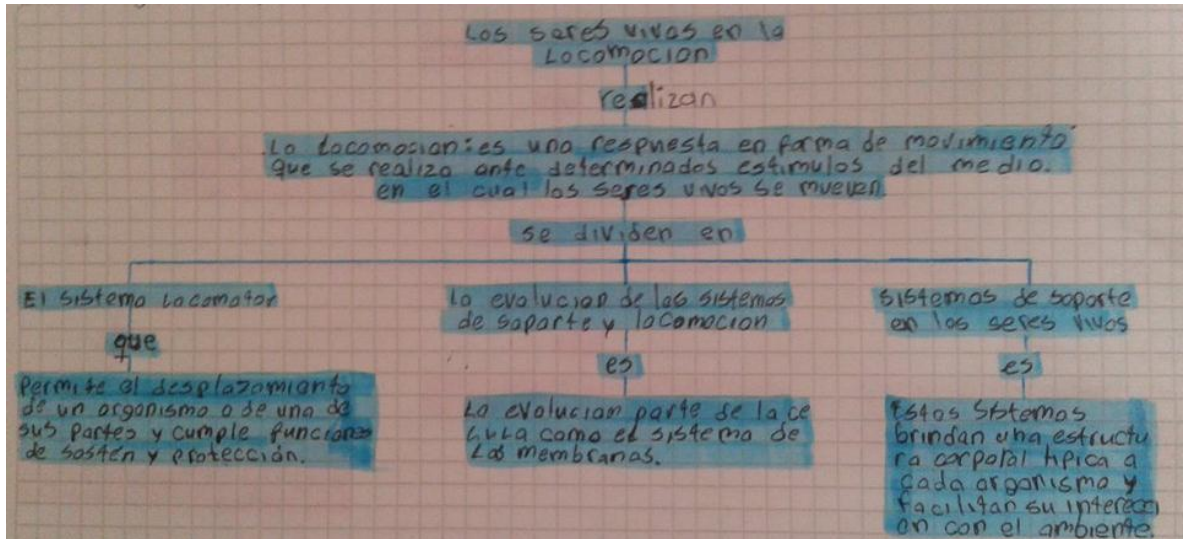 Los seres vivos en la
Locomocion
realizan
La Locomocion: es una respuesta en forma de movimiento
que se realiza ante determinados estimulos del medio.
en el cual los seres vivos se mueven.
se dividen en
El sistema Locomotor
que
Permite el desplazamiento
de un organismo o de una de
sus partes y cumple funciones
de sostén y protección.
La evolucion de los sistemas
de soporte y locomocion
es
La evolucion parte de la ce
lula como el sistema de
Las membranas.
sistemas de soporte
en los seres vivos
es
Estos Sistemas
brindan una estructu
ra corporal tipica a
cada organismo y
facilitan su interecci
on con el ambiente.